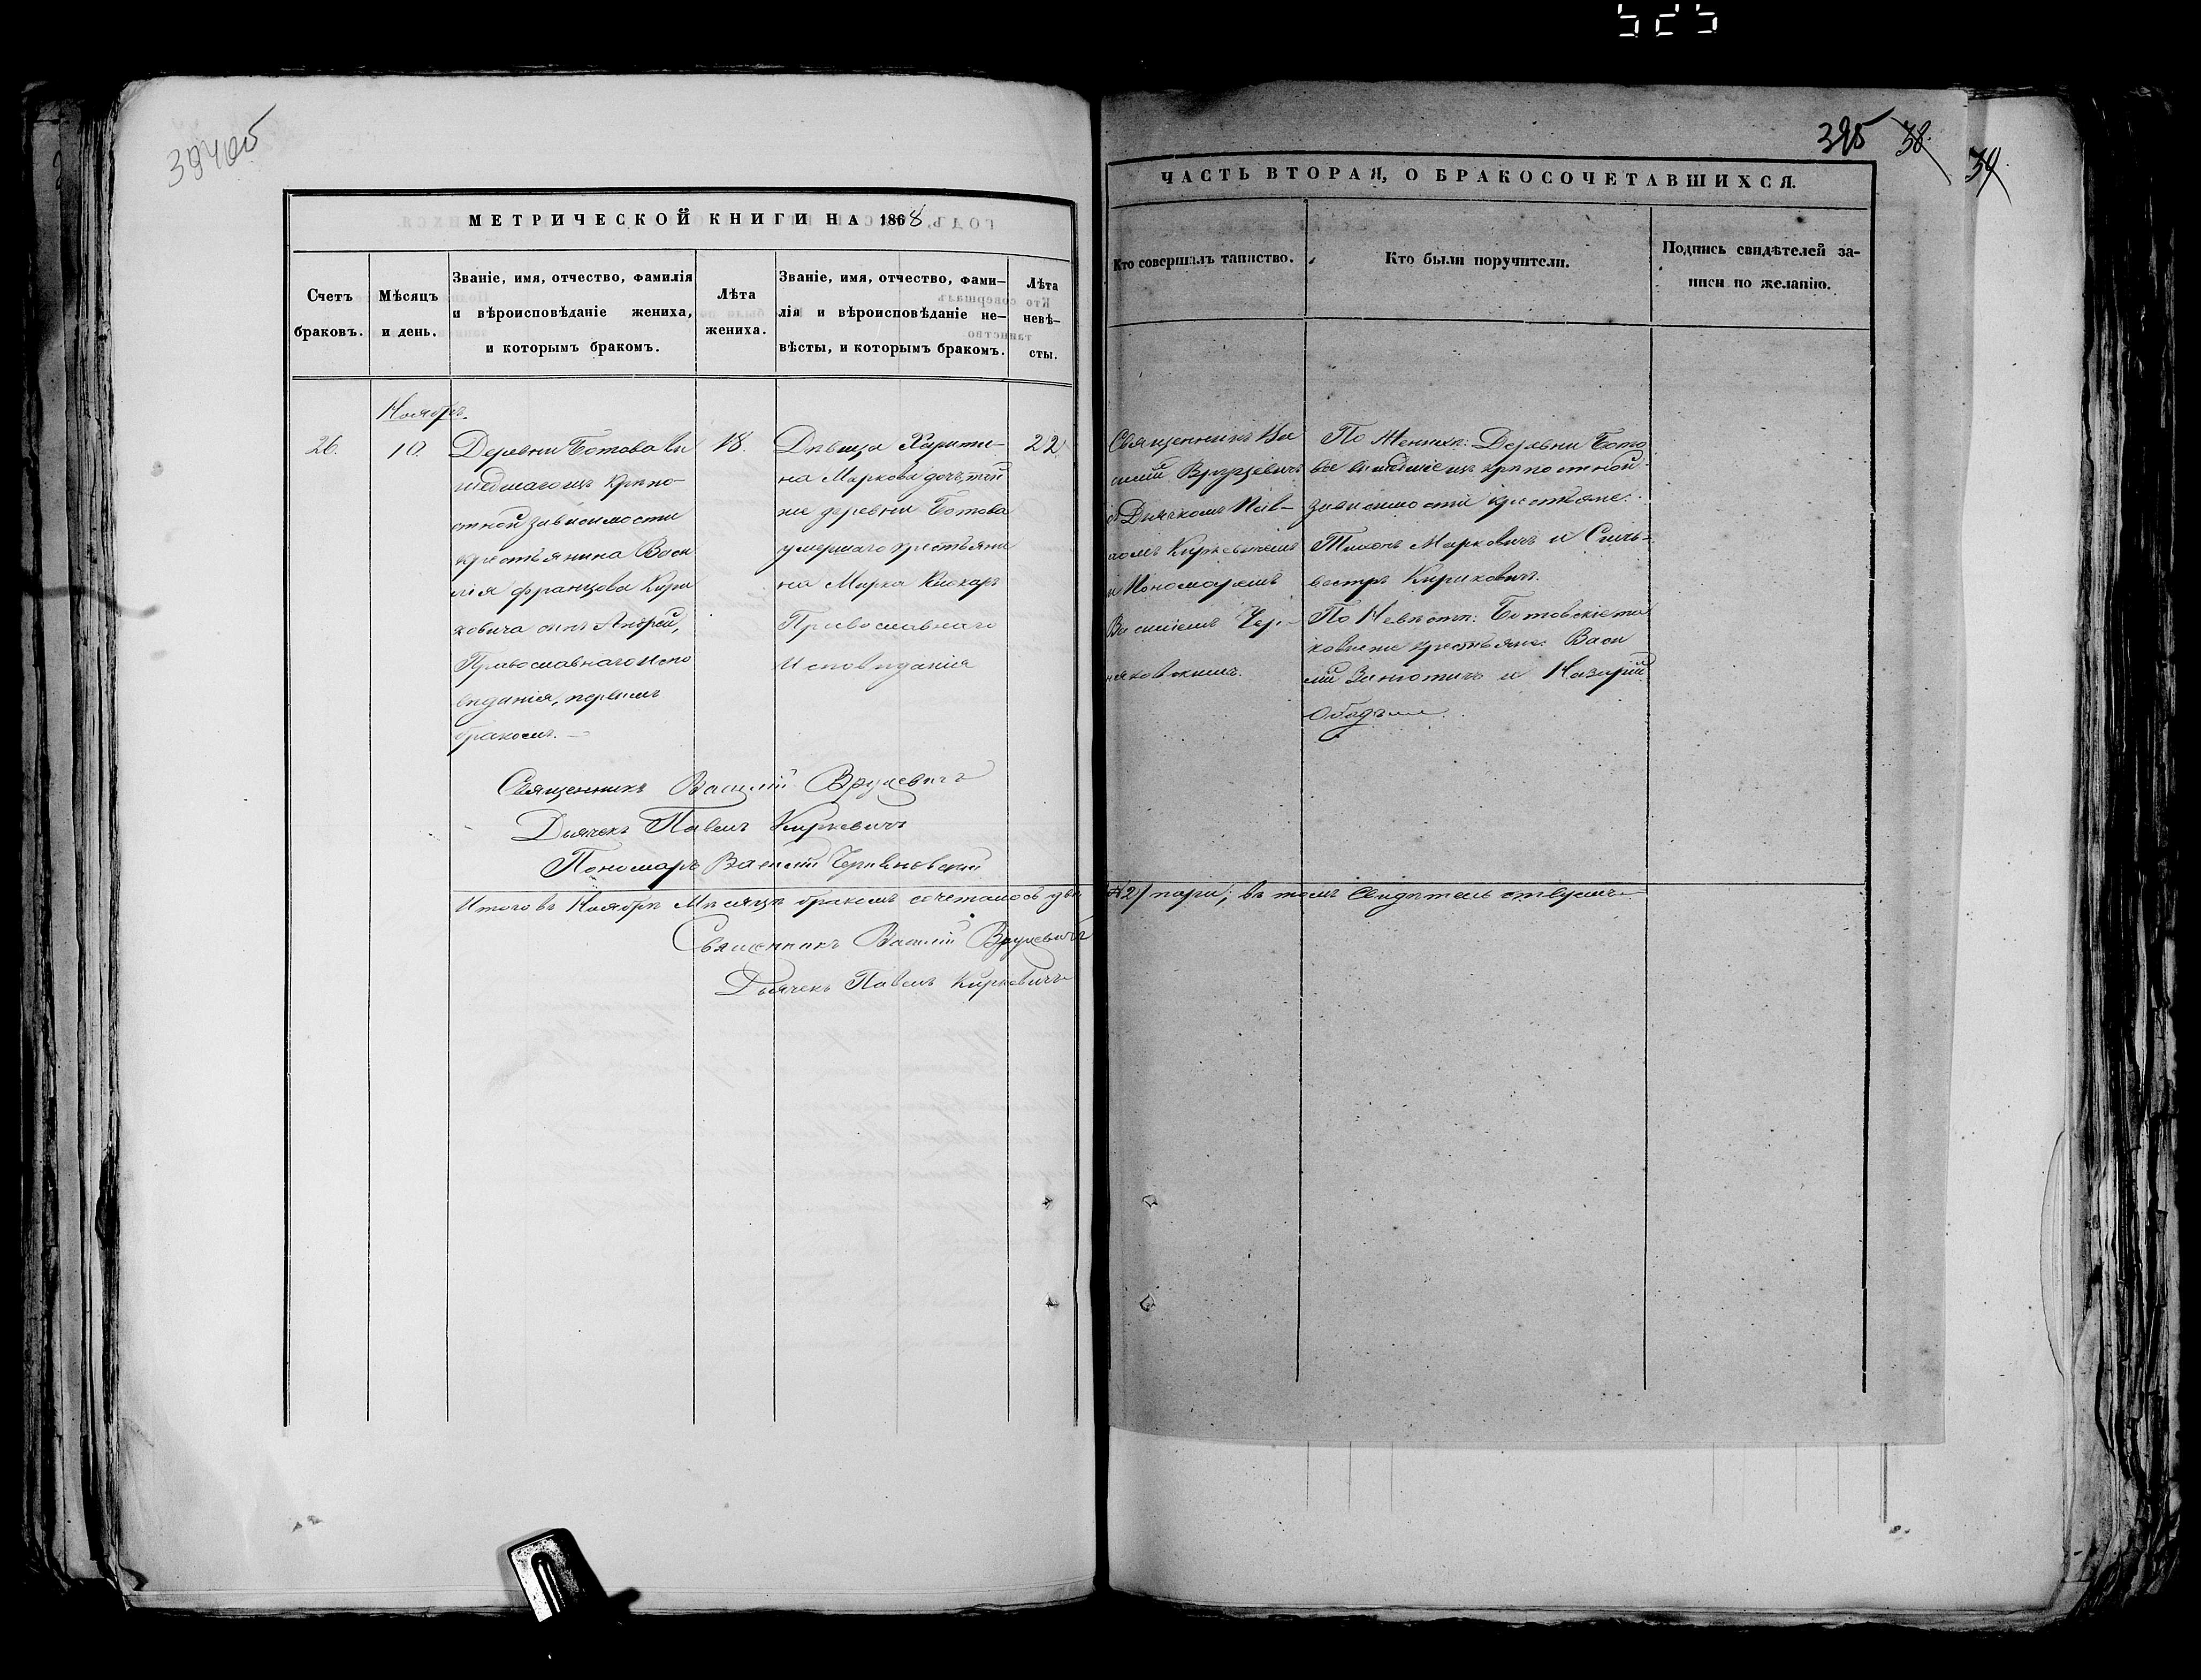 394об
МЕТРИЧЕСКОЙ КНИГИ НА 1868
Счетъ
браковъ.
Мѣсяцъ
и день.
Званіе, имя, отчество, фамилія
и вѣроисповѣданіе жениха,
и которымъ бракомъ.
Лѣта
жениха.
Званіе, имя, отчество, фами-
лія и вѣроисповѣданіе не-
вѣсты, и которымъ бракомъ.
Лѣта
невѣ-
сты.
Ноябрь.
26.
10.
Деревни Ботова вы
шедшаго изъ крѣпо-
стной зависимости
крестьянина Васи
лія Францова Кири
ковича сынъ Андрей,
Православнаго Испо
вѣданія, первымъ
бракомъ.
18.
Дѣвица Харити-
на Маркова дочь, той
же деревни Ботова
умершаго крестьяни
на Марка
Православнаго
Исповѣданія
22
Священникъ Василій Вруцевичъ
Дьячекъ Павелъ Киркевичъ
Пономарь Василій
Итого въ Ноябрѣ Мѣсяцѣ бракомъ сочеталось двѣ
Священникъ Василій Вруцевичъ
Дьячекъ Павелъ Киркевичъ
395 38. 39.
ЧАСТЬ ВТОРАЯ, О БРАКОСОЧЕТАВШИХСЯ.
Кто совершалъ таинство.
Кто были поручители.
Подпись свидѣтелей за-
писи по желанію.
Священникъ Ва
силій Вруцевичъ
съ Дьячкомъ Пав-
ломъ Киркевичемъ
и Пономаремъ
Василіемъ Чер-
няковскимъ.
По Женихѣ: Деревни Бото
ва вышедшіе изъ крѣпостной
зависимости крестьяне:
Тихонъ Марковичъ и Силь-
вестръ Кириковичъ.
По Невѣстѣ: Ботовскіе та
ковые же крестьяне: Васи
лій и Назарій
(2) пары; въ томъ свидѣтельствуемъ